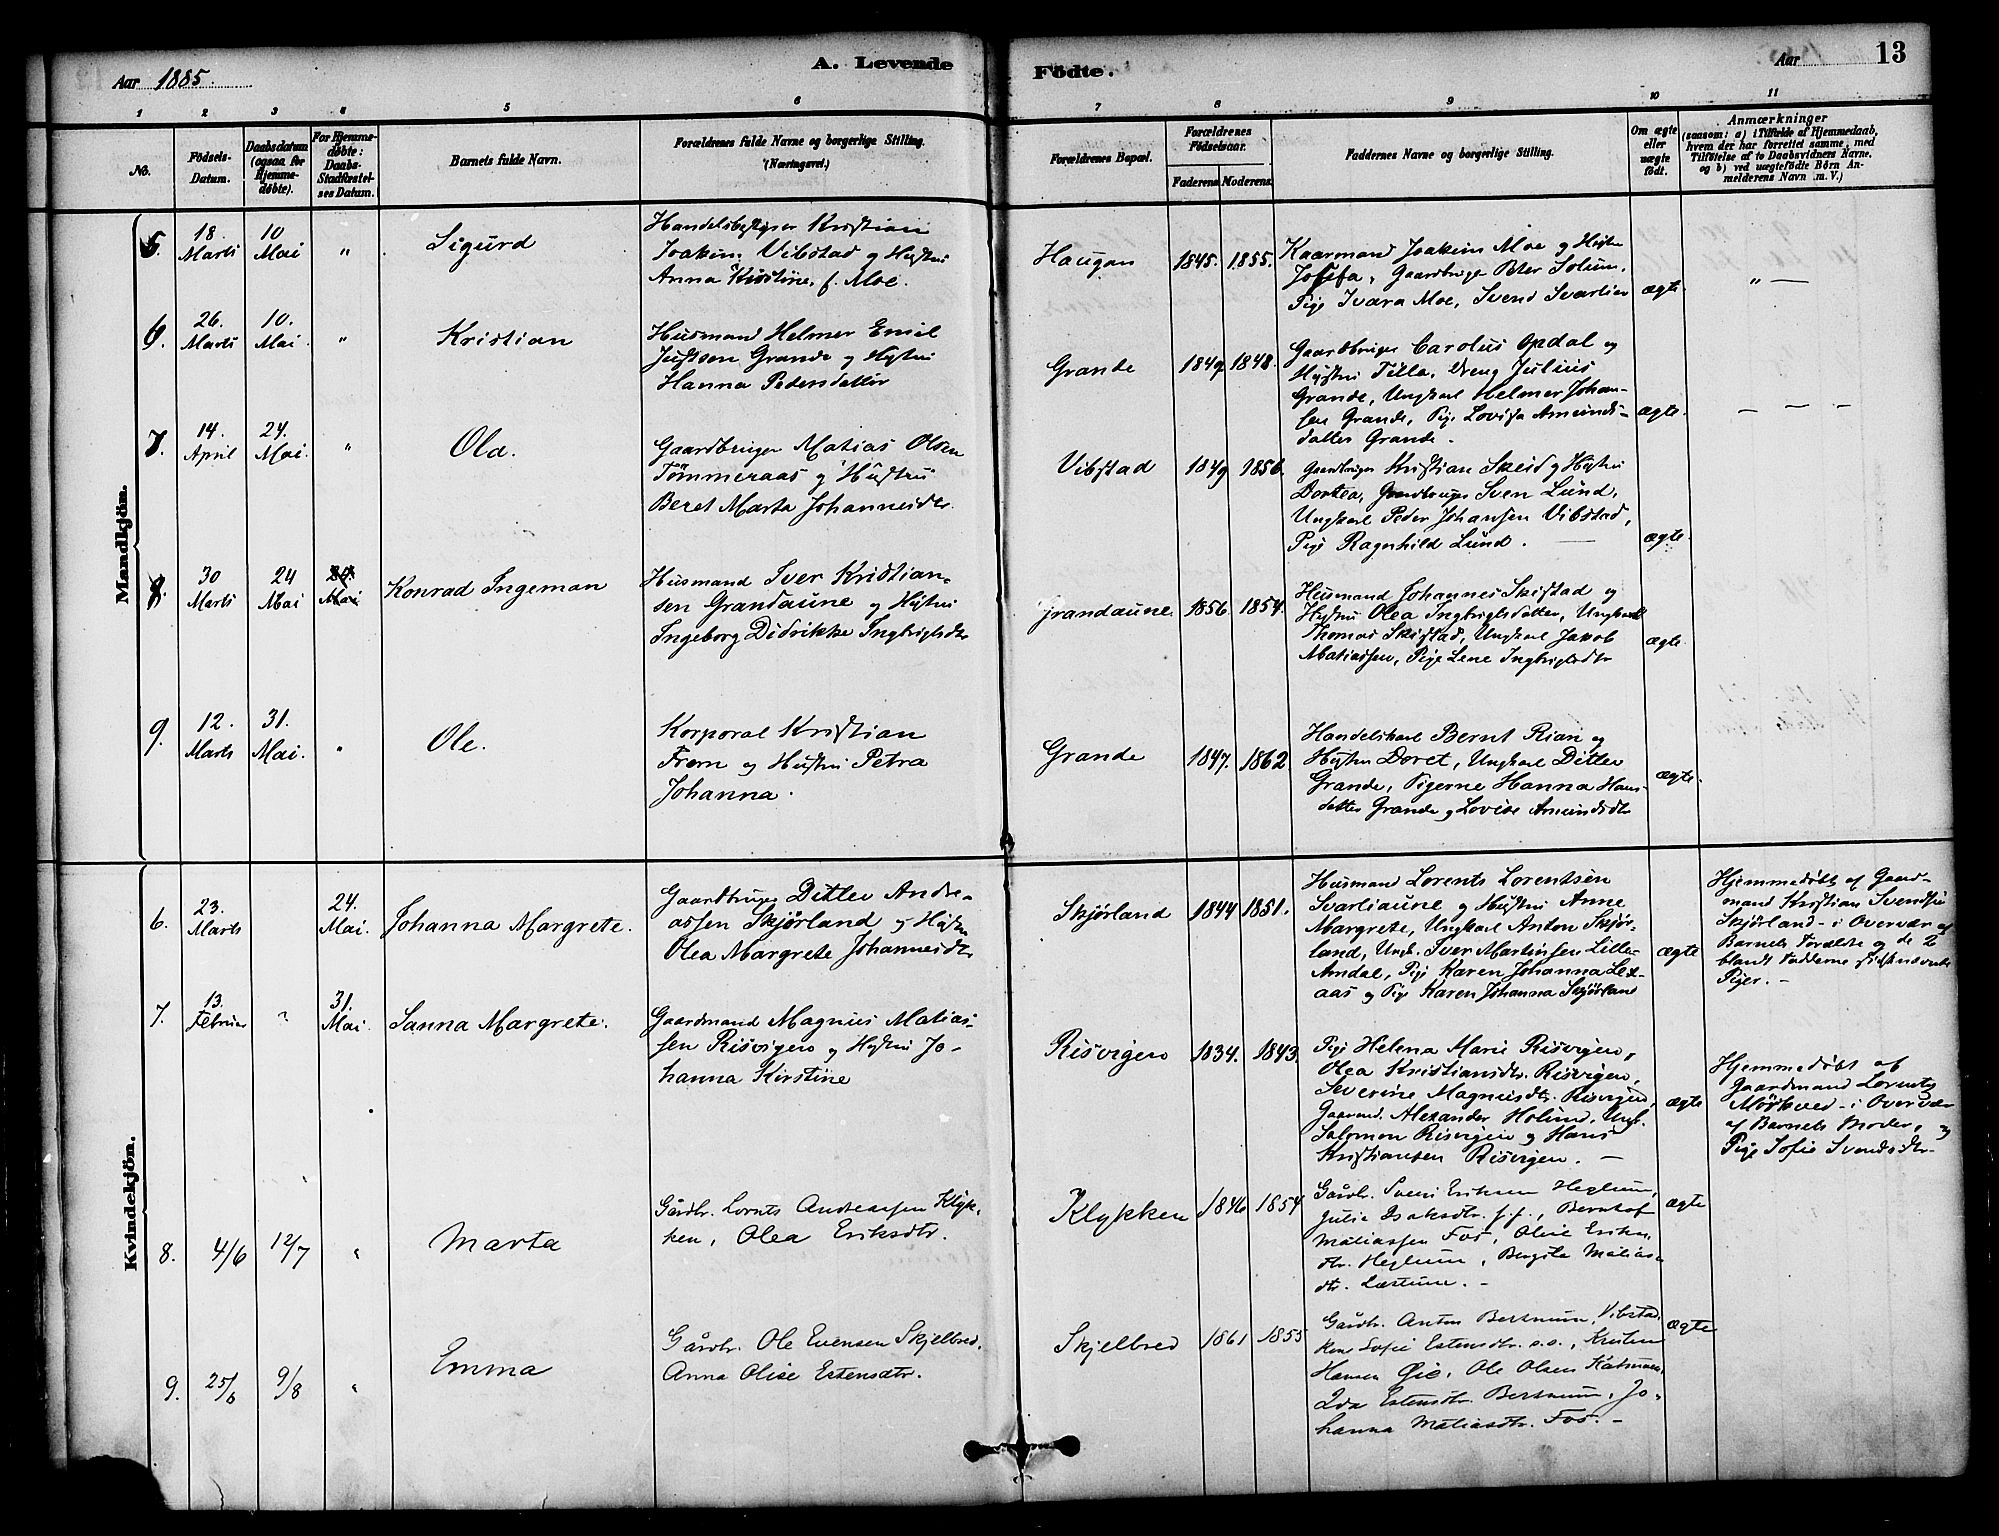 Aar 1885.
A. Levende
Födte.
Aar
13
1 2 3 4 5 6 7 8 9 10 11
No.
Födsels-
Datum.
Daabsdatum
(ogsaa for
Hjemme-
döbte).
For Hjemme-
döbte:
Daabs-
Stadfæstel-
ses Datum.
Barnets fulde Navn.
Forældrenes fulde Navne og borgerlige Stilling.
(Næringsvei.)
Forældrenes Bopæl.
Forældrenes
Födselsaar.
Faderens. Moderens.
Faddernes Navne og borgerlige Stilling.
Om ægte
eller
uægte
födt.
Anmærkninger
(saasom: a) i Tilfælde af Hjemmedaab,
hvem der har forrettet samme, med
Tilföielse af to Daabsvidners Navne,
og b) ved uægtefödte Börn An-
melderens Navn m. V.)
Mandkjön.
5. 18 Marts 10 Mai " Sigurd
Handelsbestyrer Kristian
Joakim Vibstad og Hustru
Anna Kirstine, f. Moe.
Haugan 1845. 1855.
Kaarmand Joakim Moe og Hustru
Josefa, Gaardbruger Peter Solum,
Pige Ivara Moe, Svend Svartlien
ægte " —
6. 26. Marts 10. Mai. " Kristian
Husmand Helmer Emil
Justsen Grande og Hustru
Hanna Pedersdatter
Grande 1849 1848.
Gaardbruger Carolus Opdal og
Hustru Tilla, Dreng Julius
Grande, Ungkarl Helmer Johan-
sen Grande, Pige Lovisa Amunds-
datter Grande.
ægte. — — —
7. 14. April 24. Mai. " Ola.
Gaardbruger Matias Olsen
Tömmeraas og Hustru
Beret Marta Johannesdtr.
Vibstad 1849 1856.
Gaardbruger Kristian Skeid og Hustru
Dortea, Gaardbruger Sven Lund,
Ungkarl Peder Johansen Vibstad,
Pige Ragnhild Lund. —
ægte.
8. 30 Marts 24 Mai 24. Mai Konrad Ingeman
Husmand Iver Kristian-
sen Grandaune og Hustru
Ingeborg Didrikke Ingbrigtsdtr
Grandaune 1856. 1854.
Husmand Johannes Skistad og
Hustru Olea Ingbrigtsdatter, Ungkarl
Thomas Skistad, Ungkarl Jakob
Matiassen, Pige Lene Ingbrigtsdtr
ægte.
9. 12. Marts 31. Mai. " Ole.
Korporal Kristian
Frem og Hustru Petra
Johanna.
Grande 1847. 1862
Handelskarl Bernt Rian og
Hustru Doret, Ungkarl Ditlev
Grande, Pigerne Hanna Hans-
datter Grande og Lovise Amundsdtr
ægte.
Kvindekjön.
6. 23. Marts 24. Mai. Johanna Margrete.
Gaardbruger Ditlev Andre-
assen Skjørland og Hustru
Olea Margrete Johannesdtr
Skjørland 1844 1851.
Husmand Lorents Lorentsen
Svartliaune og Hustru Anne
Margrete, Ungkarl Anton Skjør-
land, Ungk. Iver Martinsen Lille-
Amdal, Pige Karen Johanna Lex-
aas og Pige Karen Johanna Skjørland
ægte
Hjemmedøbt af Gaard-
mand Kristian Svendsen
Skjørland – i Overvær af
Barnets Forældre og de 2
blandt Fadderne sidstnævnte
Piger. –
7. 13. Februar " 31. Mai. Sanna Margrete.
Gaardmand Magnus Matias-
sen Risvigen og Hustru Jo-
hanna Kirstine
Risvigen 1834. 1843.
Pige Helena Marie Risvigen,
Olea Kristiansdtr. Risvigen,
Severine Magnusdtr. Risvigen,
Gaardmd. Alexander Holund, Ungk.
Salomon Risvigen og Hans
Kristiansen Risvigen. –
ægte
Hjemmedøbt af
Gaardmand Lorents
Mörkved – i Overvær
af Barnets Moder, og
Pige Sofie Svendsdtr.
8. 4/6 12/7 " Marta
Gårdbr. Lornts Andreassen Klyk-
ken, Olea Eriksdtr.
Klykken 1846 1854
Gårdbr. Sven Eriksen Heglum,
Julie Isaksdtr. , Bernhof
Matiassen Fos, Olise Eriks-
dtr. Heglum, Bergite Matias-
dtr. Læssum. –
ægte
9. 25/6 9/8 " Emma
Gårdbr. Ole Evensen Skjelbred,
Anna Olise Estensdtr.
Skjelbred 1861 1855
Gårdbr. Anton Bersnum, Vibstad,
Sofie Estensdtr. , 
Hansen Øie, Ole Olsen
Ida Estensdtr. Bersnum, Jo-
hanna Matiasdtr. Fos. –
ægte